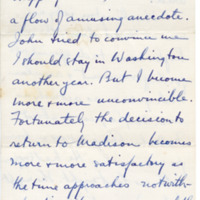 a flow of amusing anecdote.
John tried to convince me
I should stay in Washington
another year. But I become
more & more unconvincible.
Fortunately the decision to
return to Madison becomes
more & more satisfactory as
the time approaches notwith-